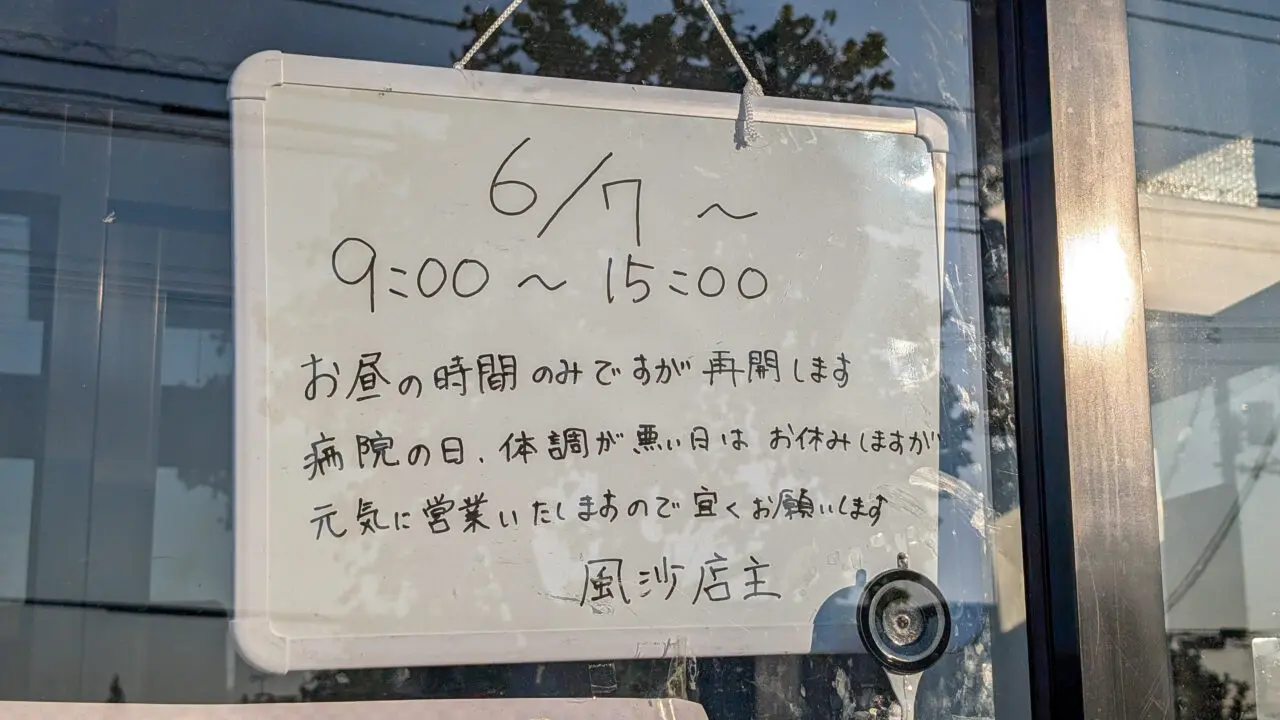 6/7 ~
9:00 ~ 15:00
お昼の時間のみですが再開します
病院の日、体調が悪い日は お休みしますが
元気に営業いたしますので宜くお願いします
風沙店主